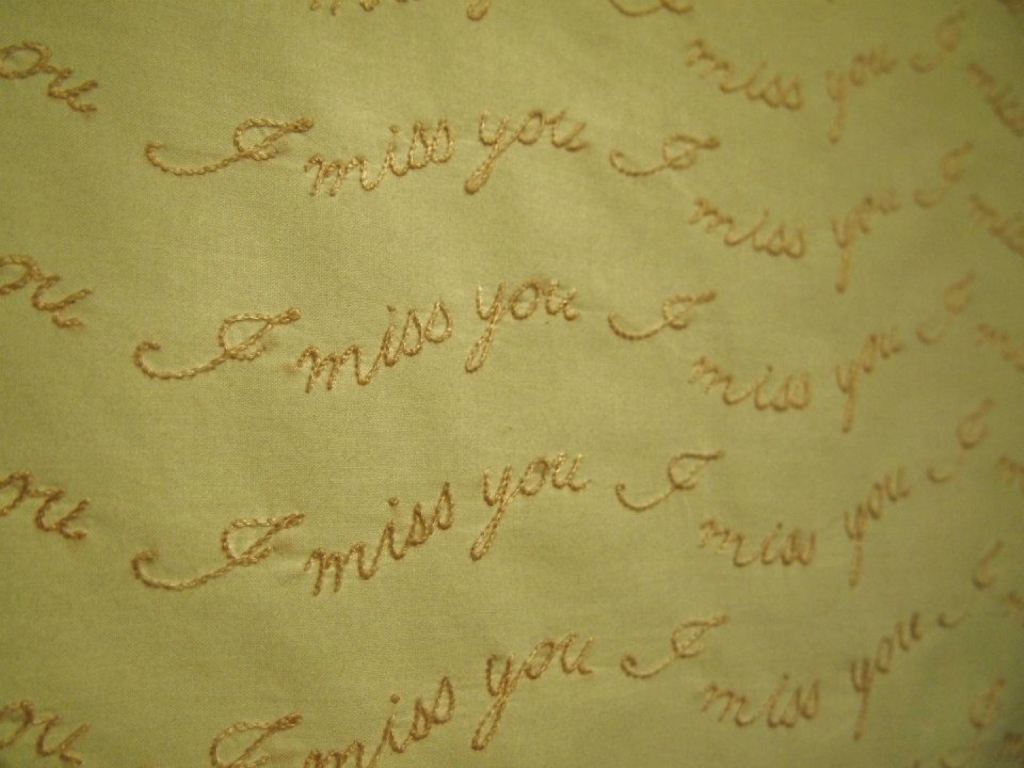 miss you I
ou I miss you I miss you I miss
ou I miss you I miss you I
ou I miss you I miss you I
ou I miss you I miss you